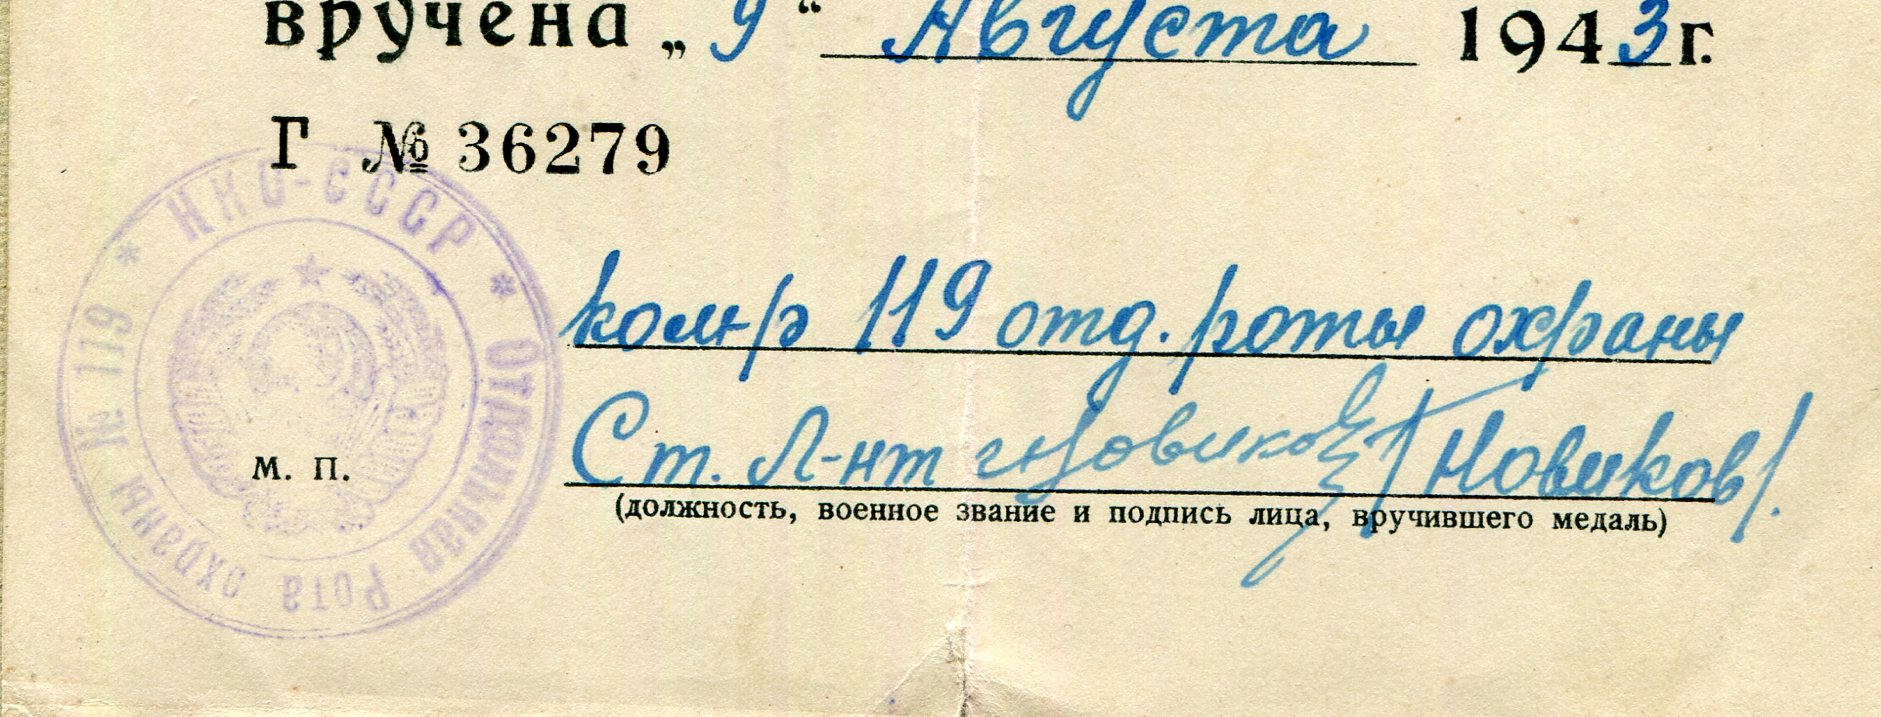 вручена „ 9 “ Августа 1943 г.
Г № 36279
* НКО-СССР * Отдельная Рота охраны № 119
ком-р 119 отд. роты охраны
М. П.
Ст. Л-нт Новиков /Новиков/.
(должность, военное звание и подпись лица, вручившего медаль)